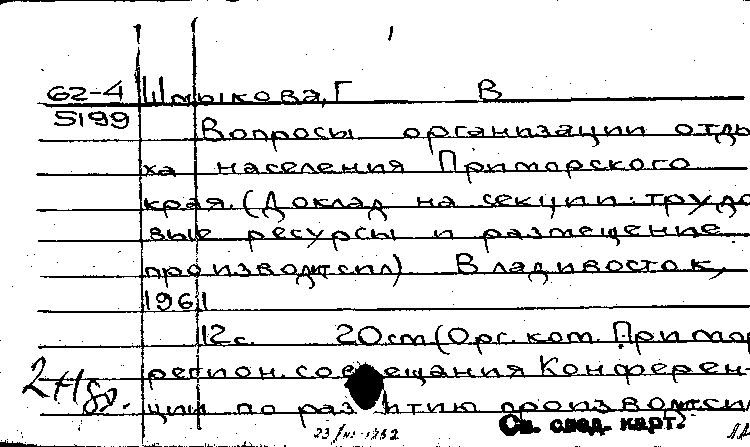 1
62-4 Шмыкова, Г В
5199
Вопросы организации отды-
ха населения Приморского
края. (Доклад на секции: трудо
вые ресурсы и размещение
производит.сил) Владивосток,
1961
12с. 20см (Орг. ком. Примор
регион. совещания Конферен-
ции по развитию производит.сил
См. след. карт.